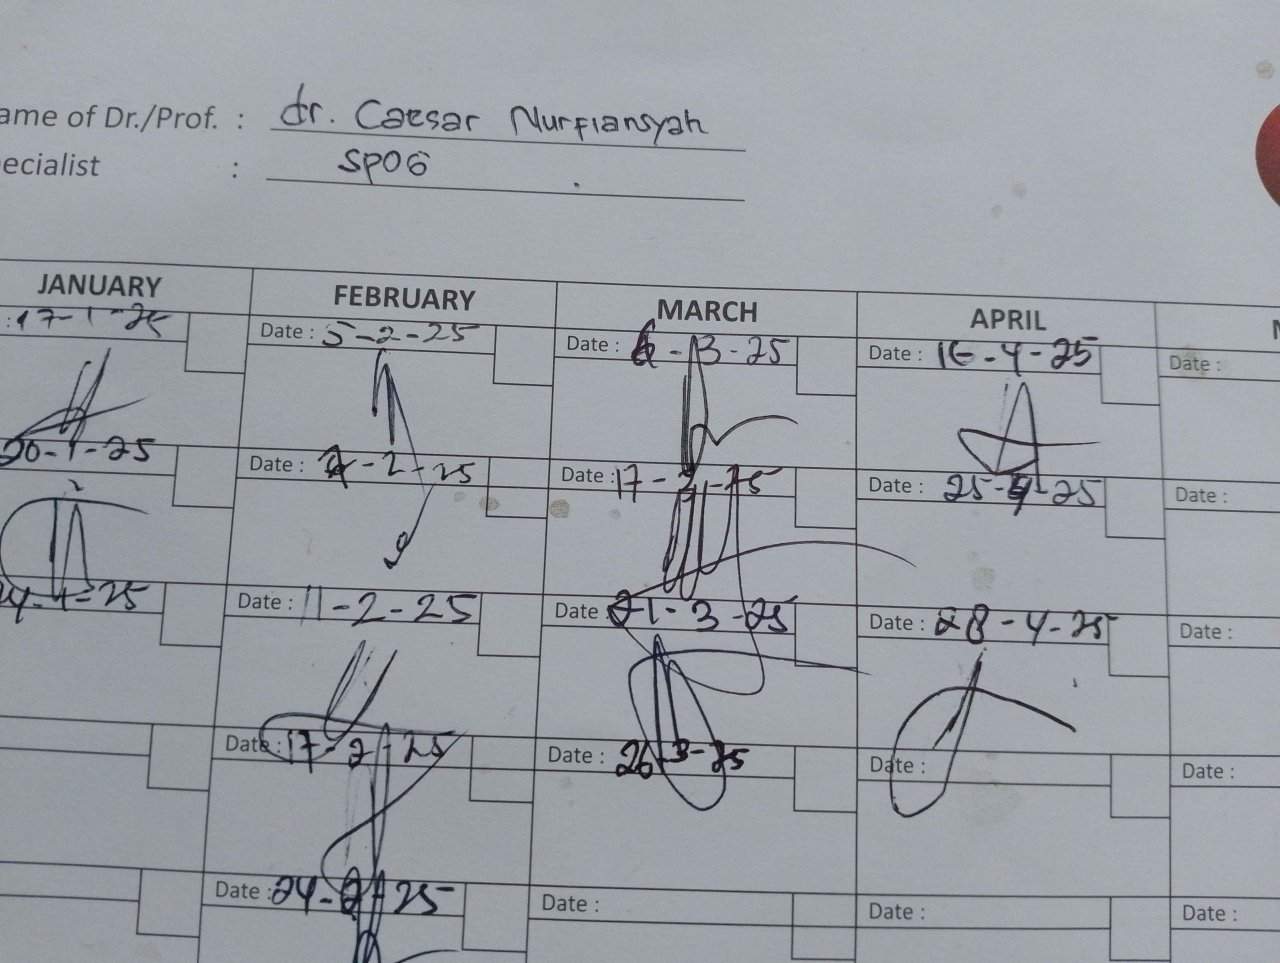 ame of Dr./Prof. : dr. Caesar Nurfiansyah
ecialist : SPOG
JANUARY FEBRUARY MARCH APRIL
: 17-1-25 Date : 5-2-25 Date : 6-3-25 Date : 16-4-25 Date :
20-1-25 Date : -2-25 Date : 17-3-25 Date : 25-4-25 Date :
24-1-25 Date : 11-2-25 Date : 21-3-25 Date : 28-4-25 Date :
Date : 17-2-25 Date : 26-3-25 Date : Date :
Date : 24-2-25 Date : Date : Date :